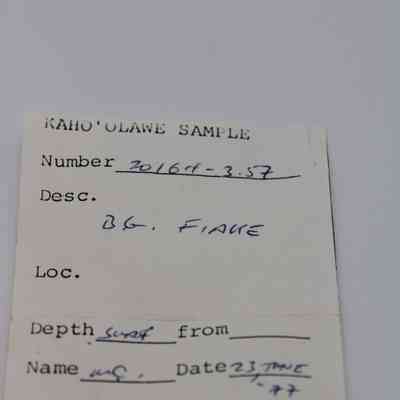 KAHO'OLAWE SAMPLE
Number 20164-3.57
Desc.
BG. FLAKE
Loc.
Depth surf from
Name MG. Date 23 JUNE
77